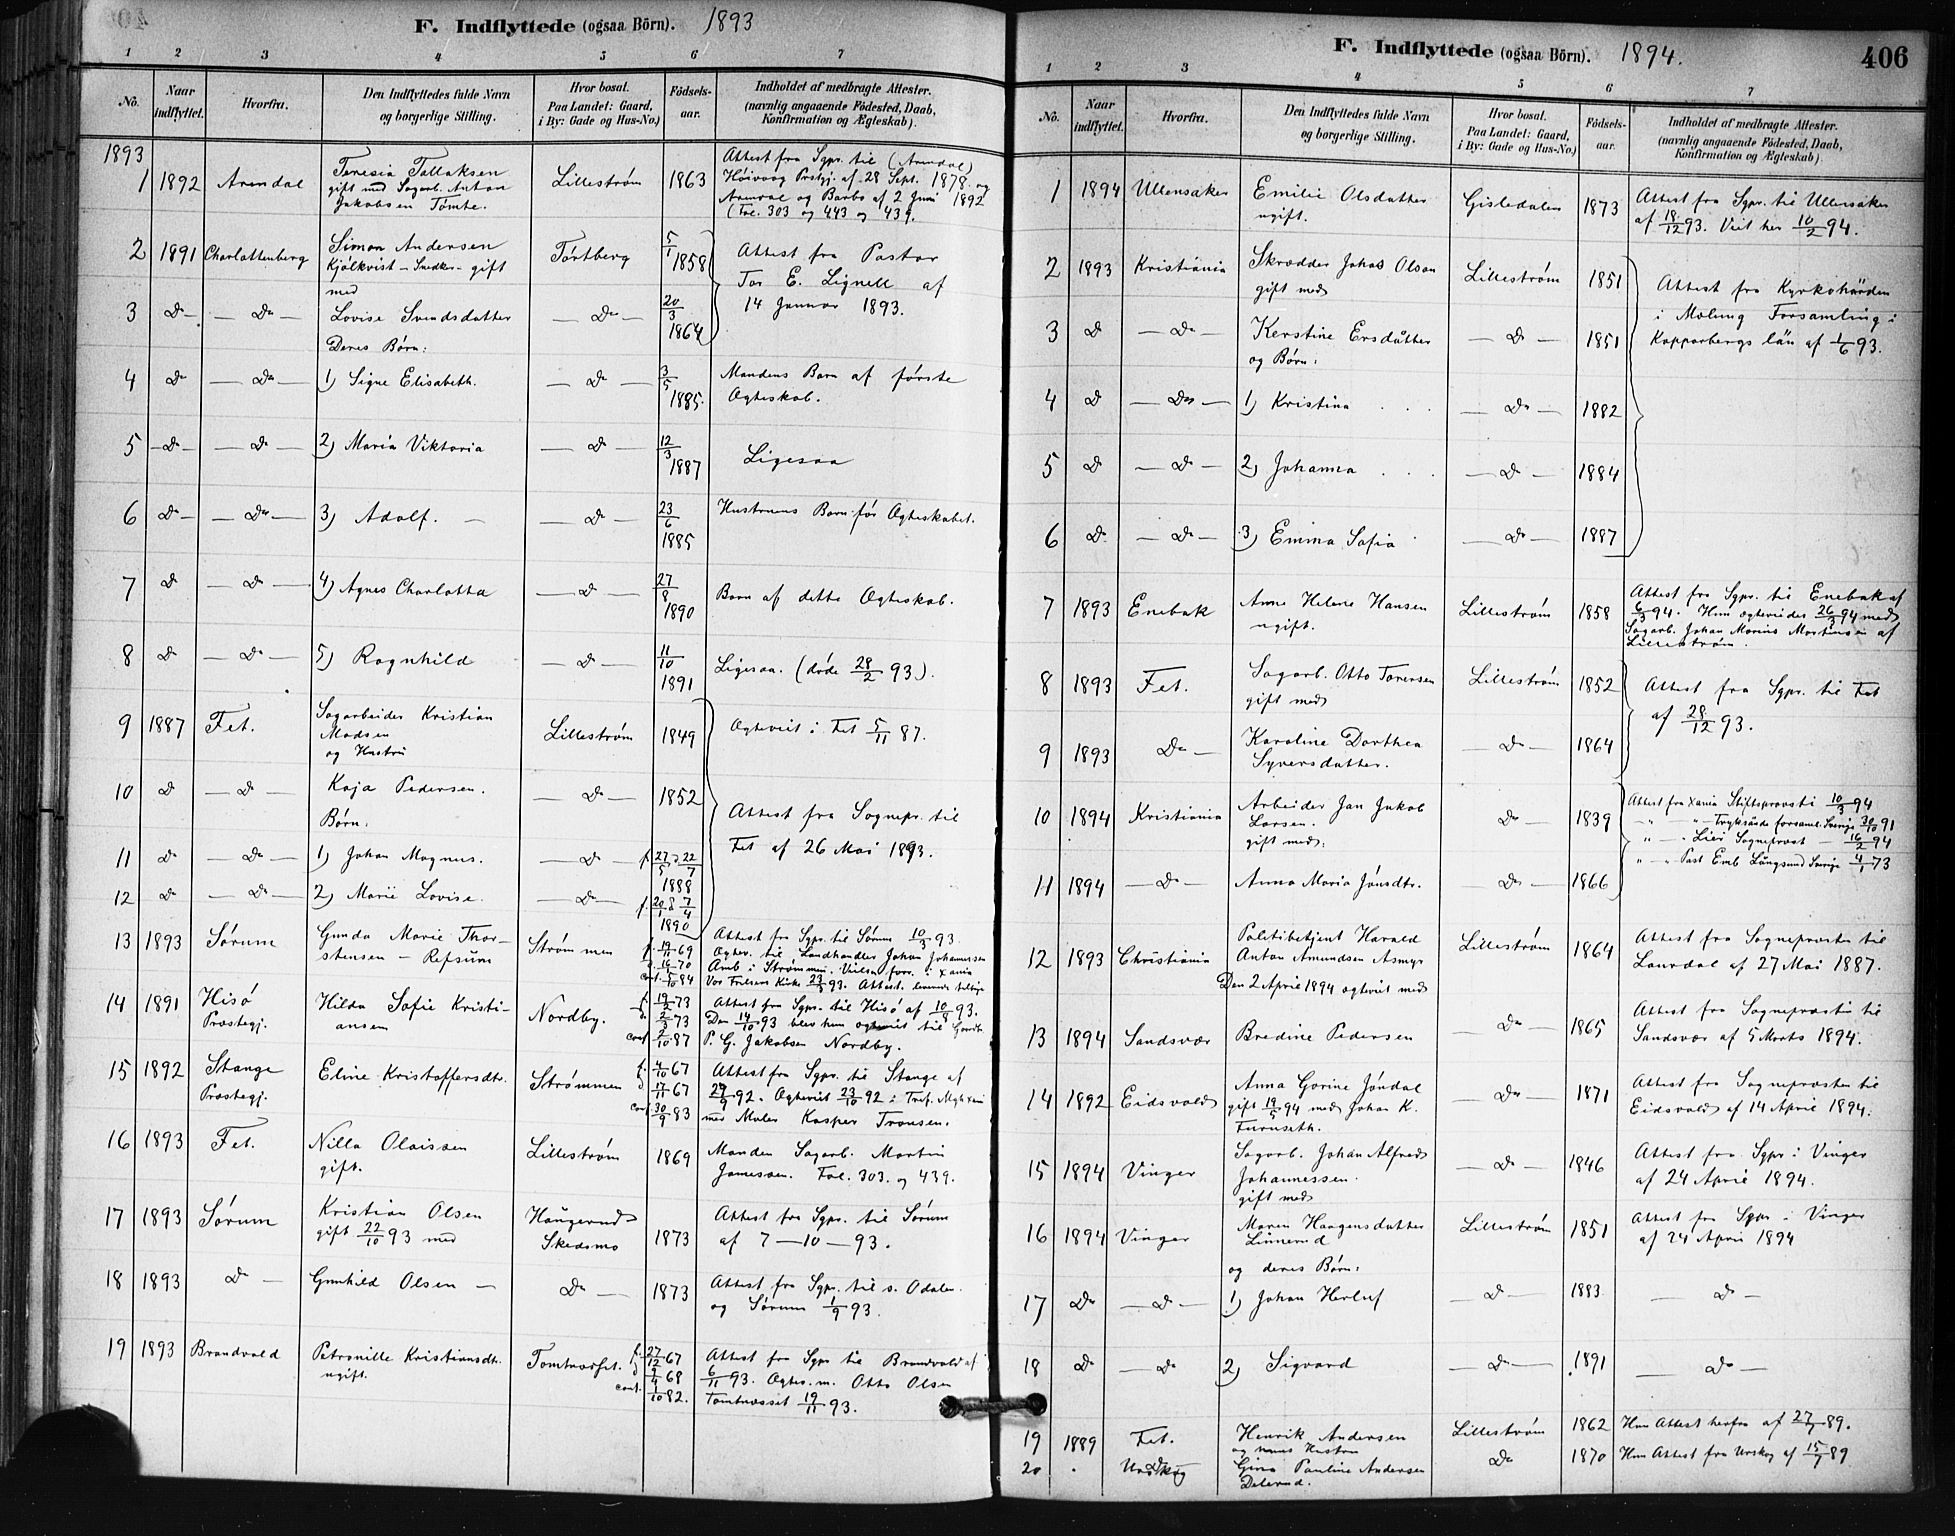 F. Indflyttede (ogsaa Börn). 1893
1 2 3 4 5 6 7
No.
Naar indflyttet.
Hvorfra.
Den Indflyttedes fulde Navn og borgerlige Stilling.
Hvor bosat. Paa Landet: Gaard, i By: Gade og Hus-No.)
Fødsels-aar.
Indholdet af medbragte Attester. (navnlig angaaende Födested, Daab, Konfirmation og Ægteskab).
1893
1 1892 Arendal Teresia Tallaksen gift med Sagarb. Anton Jakobsen Tømte. Lillestrøm 1863 Attest fra Sgpr. til (Arendal) Høivaag Prstgj. af 28 Sept. 1878 og Arendal og Barbo af 2 Juni 1892 (Fol. 303 og 443 og 439.
2 1891 Charlottenberg Simon Andersen Kjölkvist – Snedker – gift med Tórtberg 5/1 1858 Attest fra Pastor Tor E. Lignell af 14 Januar 1893.
3 Do – Do – Lovise Svendsdatter – Do – 20/3 1864
Deres Børn:
4 Do – Do – 1) Signe Elisabeth. – Do 3/5 1885. Mandens Barn af første Ægteskab.
5 – Do – – Do – 2) Maria Viktoria – Do – 12/3 1887 Ligesaa
6 Do – – Do – 3) Adolf. – – Do – 23/6 1885 Hustruens Barn før Ægteskabet.
7 Do – Do – 4) Agnes Charlotta – Do – 27/8 1890 Barn af dette Ægteskab.
8 Do – Do – 5) Ragnhild – Do – 11/10 1891 Ligesaa. (døde 28/2 93).
9 1887 Fet. Sagarbeider Kristian Madsen og Hustru Lillestrøm 1849 Ægteviet i Fet 5/11 87.
10 Do – Do – Kaja Pedersen. – Do – 1852 Attest fra Sognepr. til Fet af 26 Mai 1893.
Børn:
11 Do – Do – 1) Johan Magnus. – Do – f. 27/5 d 22/7 1888
12 Do – Do – 2) Marie Lovise. – Do – f. 20/1 d 7/4 1890
13 1893 Sørum Gunda Marie Thorstensen – Refsum Strømmen f. 19/11 69 d. 16/1 70 conf. 5/10 84 Attest fra Sgpr. til Sørum 10/3 93. Ægtev. til Landhandler Johan Johannessen i Strømmen. i Xania Vor Frelsers Kirke 23/3 93.
14 1891 Hisö Præstegj. Hilda Sofie Kristiansen Nordby. f. 19/2 73 d. 2/3 73 conf. 2/10 87 Attest fra Sgpr. til Hisö af 10/8 93. Den 14/10 93 blev hun ægteviet til Gaardbr. P. G. Jakobsen Nordby.
15 1892 Stange Præstegj. Eline Kristoffersdtr. Strømmen f. 4/10 67 d. 17/11 67 conf. 30/9 83 Attest fra Sgpr. til Stange af 29/9 92. Ægteviet 23/10 92 i Tref. Mgh. Xania med Maler Kasper Tronsen.
16 1893 Fet. Nilla Olaissen gift. Lillestrøm 1869 Manden Sagarb. Martin Jamessen. Fol. 303. og 439.
17 1893 Sørum Kristian Olsen gift 22/10 93 med Haugerud Skedsmo 1873 Attest fra Sgpr. til Sørum af 7 – 10 – 93.
18 1893 Do – Gunhild Olsen – Do – 1873 Attest fra Sgpr. til s. Odalen og Sørum 1/9 93.
19 1893 Brandvold Petronille Kristiansdtr. ugift. Tomtnæsset. f. 27/12 67 d. 2/4 68 conf. 1/10 82. Attest fra Sgpr. til Brandvold af 6/11 93. Ægtev. m. Otto Olsen Tomtnæsset 19/11 93.
F. Indflyttede (ogsaa Börn). 1894. 406
1 2 3 4 5 6 7
No.
Naar indflyttet.
Hvorfra.
Den Indflyttedes fulde Navn og borgerlige Stilling.
Hvor bosat. Paa Landet: Gaard, i By: Gade og Hus-No.)
Födsels-aar.
Indholdet af medbragte Attester. (navnlig angaaende Födested, Daab, Konfirmation og Ægteskab)
1 1894 Ullensaker Emilie Olsdatter ugift. Gisledalen 1873 Attest fra Sgpr. til Ullensaker af 18/12 93. Viet her 10/2 94.
2 1893 Kristiania Skrædder Johas Olson gift med Lillestrøm 1851 Attest fra Kyrkohärden i Malung Forsamling i Kopparbergs län af 1/6 93.
3 Do – Do – Kerstine Ersdåtter og Børn: – Do – 1851
4 Do – Do – 1) Kristina – Do – 1882
5 Do – Do – 2) Johanna – Do – 1884
6 Do – Do – 3) Emma Sofia – Do – 1887
7 1893 Enebak Anne Helene Hansen ugift. Lillestrøm 1858 Attest fra Sgpr. til Enebak af 6/3 94. Hun ægteviedes 26/3 94 med Sagarb. Johan Marius Martinsen af Lillestrøm.
8 1893 Fet. Sagarb. Otto Torersen gift med Lillestrøm 1852 Attest fra Sgpr. til Fet af 28/12 93.
9 1893 Do – Karoline Dorthea Syversdatter. – Do – 1864
10 1894 Kristiania Arbeider Jan Jakob Larsen. gift med: Do – 1839 Attest fra Xania Stiftsprovsti 10/3 94
" – " – Tryksände forsaml. Sverige 30/10 91
" – " Lier Sogneprest – 16/2 94
" – " Past Emb Långsund Sverige 4/1 73
11 1894 – Do – Anna Maria Jónsdtr. – Do – 1866
12 1893 Christiania Politibetjent Harald Anton Amundsen Asmyr Lillestrøm 1864 Attest fra Sognepræsten til Laurdal af 27 Mai 1887.
Den 2 April 1894 ægteviet med
13 1894 Sandsvær Bredine Pedersen – Do 1865 Attest fra Sognepræsten til Sandsvær af 5 Marts 1894.
14 1892 Eidsvold Anna Gorine Jóndal gift 19/5 94 med Johan K. Furuseth. – Do – 1871 Attest fra Sognepræsten til Eidsvold af 14 April 1894.
15 1894 Vinger Sagarb. Johan Alfred Johannessen. gift med – Do – 1846 Attest fra Sgpr. i Vinger af 24 April 1894.
16 1894 Vinger Maren Haagensdatter Linnerud Lillestrøm 1851 Attest fra Sgpr i Vinger af 24 April 1894
og deres Børn:
17 Do – Do – 1) Johan Herluf – Do – 1883 – Do –
18 Do – Do 2) Sigvard – Do – 1891 Do –
19 1889 Fet. Henrik Andersen og hans Hustru Lillestrøm 1862 Hun Attest herfra af 27/7 89.
20 . Urskog Gina Pauline Andersen Delerud. Do 1870 Hun Attest fra Urskog af 15/7 89